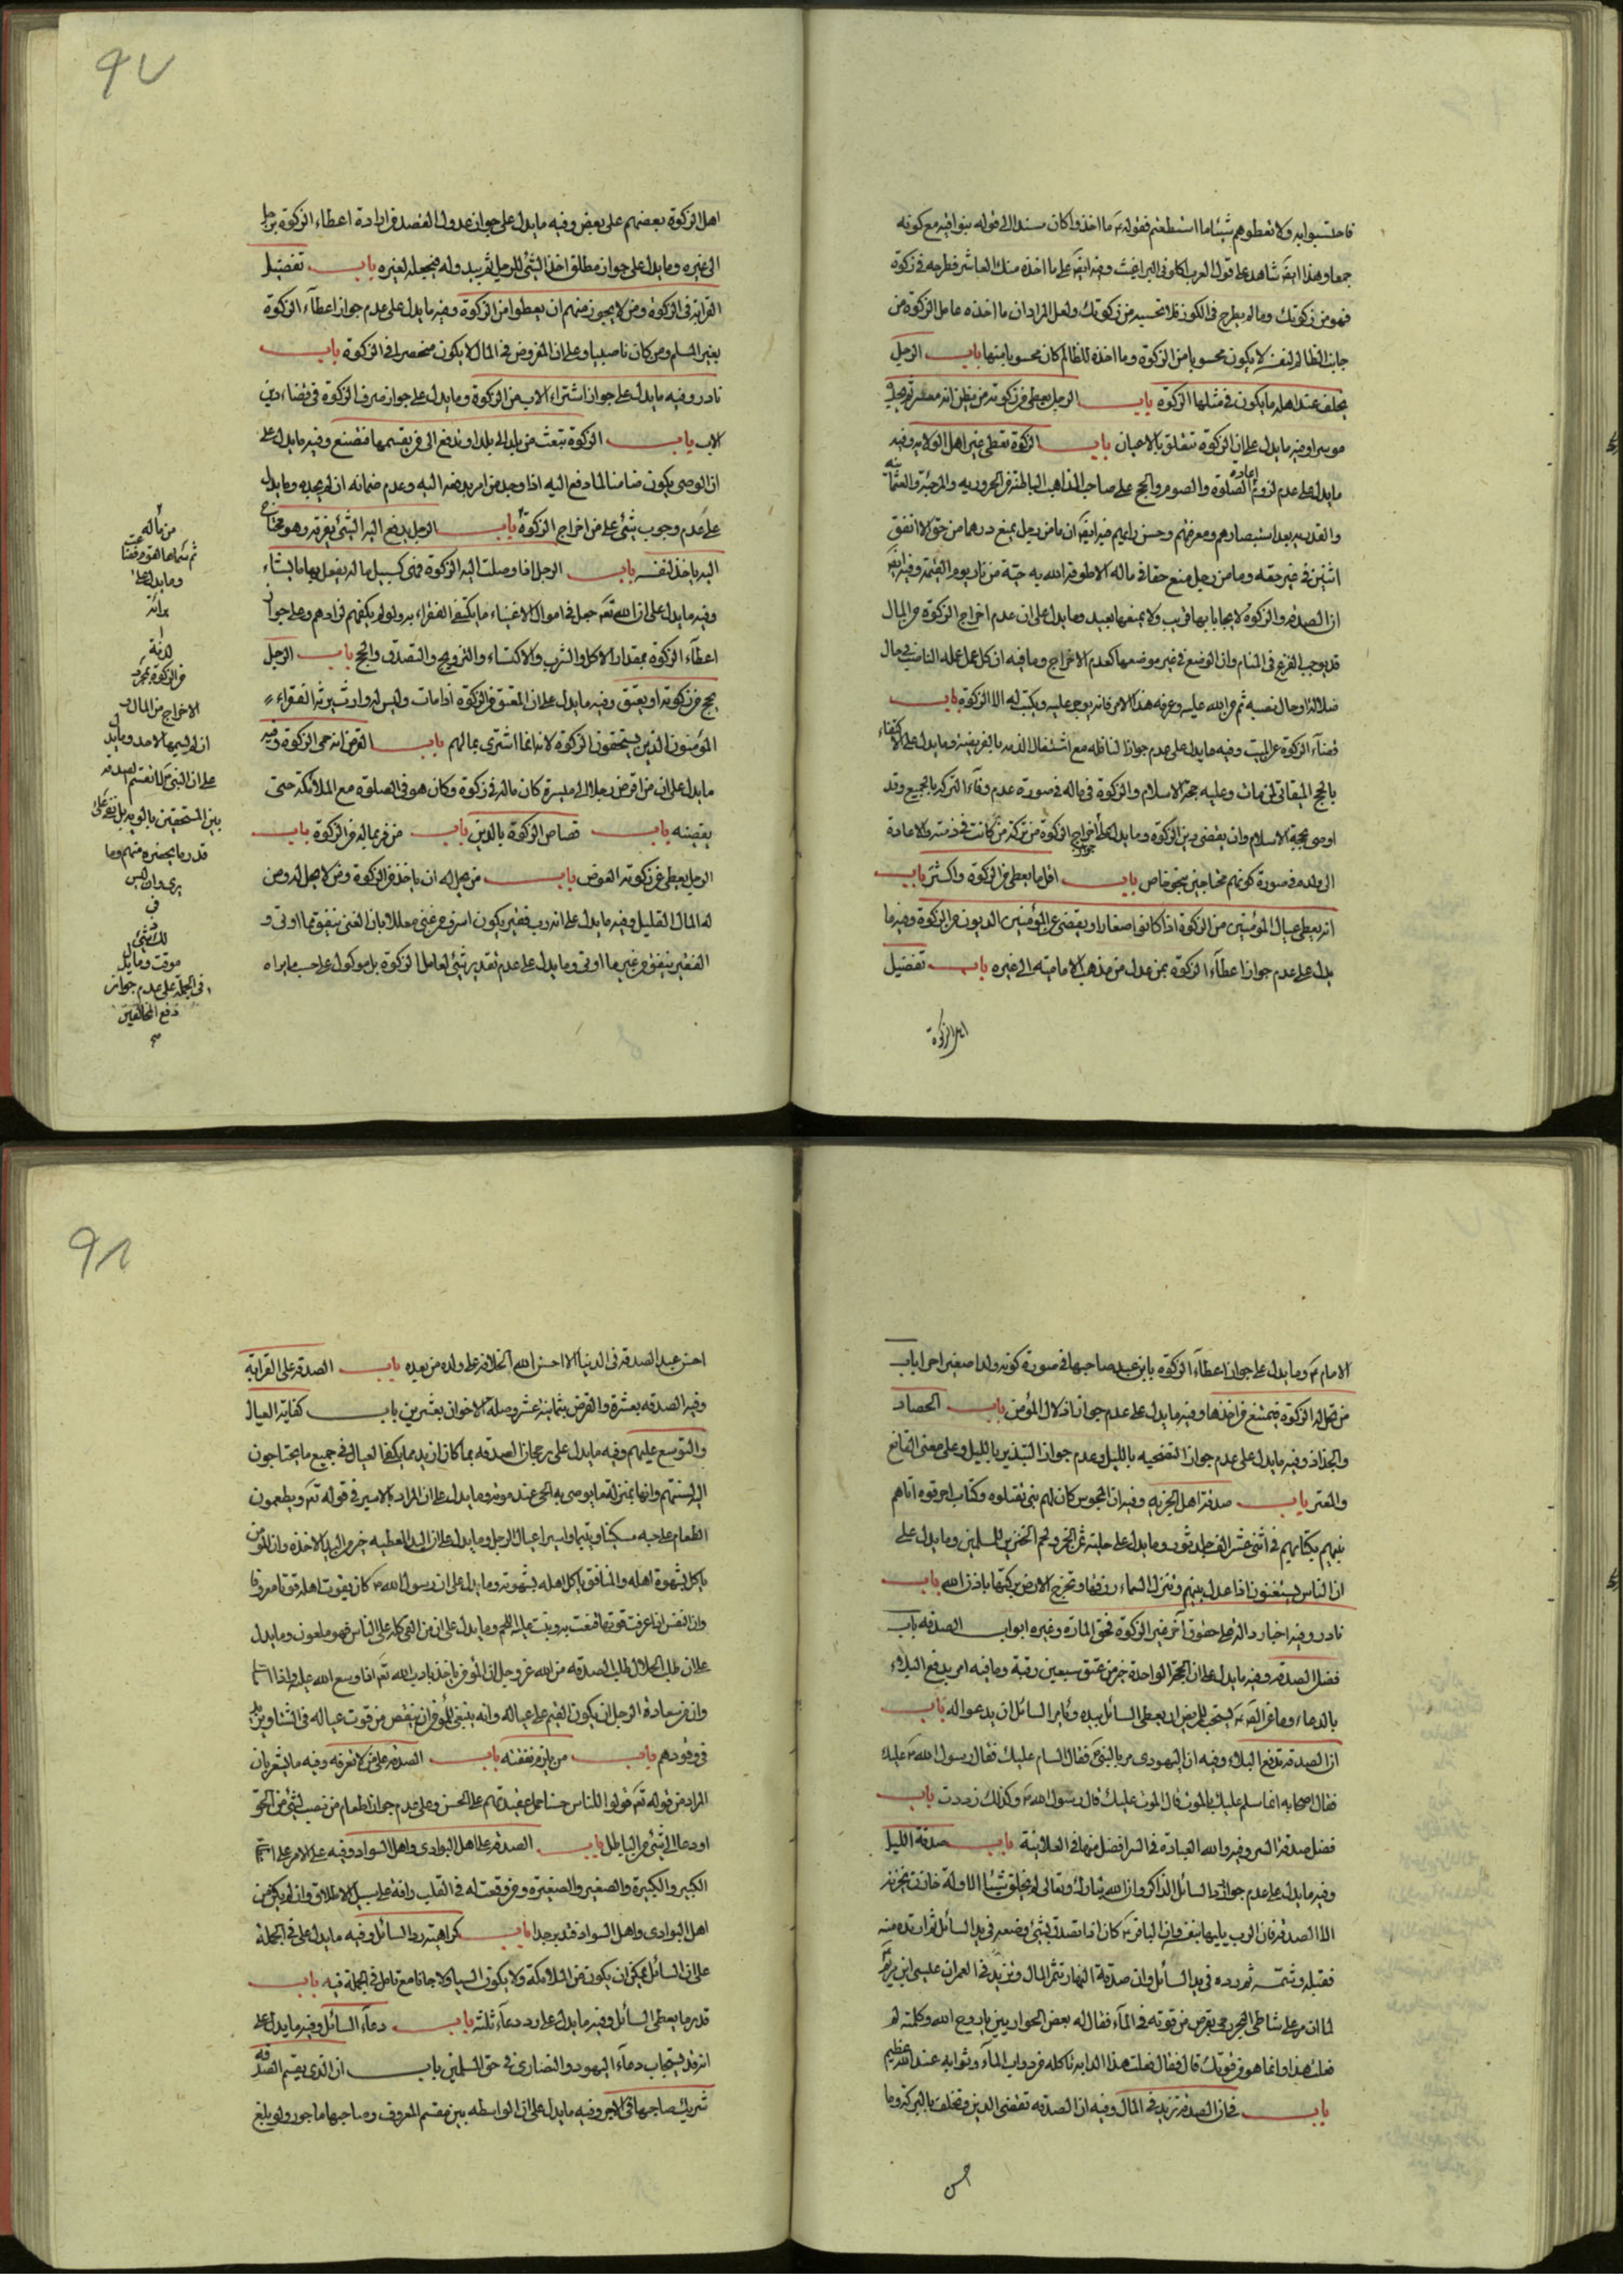 فاحتسبوا به ولا تعطوهم شيئا ما استطعتم فقوله ما اخذوا كان مستندا الى قوله بنوا فيه مع كونه
جمعا وهذا ايضا شاهد على قول العرب اكلوني البراغيث وفيه ايضا على ما اخذه منك العاشر فطرحه في زكوة
فهو من زكوتك وما لم يطرح في الكوز فلا تحسبه من زكوتك ولعل المراد ان ما اخذه عامل الزكوة من
جانب الظالم لنفسه لا يكون محسوبا من الزكوة وما اخذه للظالم كان محسوبا منها باب الرجل
يخلف عند اهله ما يكون في مثلها الزكوة باب الرجل يعطى من زكوته من يظن انه معسر ثم يجده
موسرا وفيه ما يدل على ان الزكوة تتعلق بالاعيان باب الزكوة تعطى غير اهل الولاية وفيه
ما يدل على عدم لزوم اعادة الصلوة والصوم والحج على صاحب المذاهب الباطلة من الحرورية والمرجئة والعثمانية
والقدرية بعد استبصارهم ومعرفتهم وحسن رايهم فيه ايضا ان ما من رجل يمنع درهما من حق الا انفق
اثنين في غير حقه وما من رجل منع حقا في ماله الا طوقه الله به حية من نار يوم القيمة وفيه ايضا
ان الصدقة والزكوة لا يحابا بها قريب ولا يمنعها بعيد وما يدل على ان عدم اخراج الزكوة من المال
قد يوجب الفزع في المنام وان الوضع في غير موضعها كعدم الاخراج وما فيه ان كل عمل عمله الناصب في حال
ضلاله او حال نصبه ثم من الله عليه وعرفه هذا الامر فانه يوجر عليه ويكتب له الا الزكوة باب
قضآء الزكوة عن الميت وفيه ما يدل على عدم جواز النافلة مع اشتغال الذمة بالفريضة وما يدل على الاكتفاء
بالحج الميقاتي لمن مات وعليه حجة الاسلام والزكوة في ماله في صورة عدم وفاء التركة بالجميع وقد
اوصى بحجة الاسلام وان يقضى دين الزكوة وما يدل على جواز اخراج الزكوة من تركة من كانت في ذمته والاعادة
الى ولده في صورة كونهم محتاجين بنحو خاص باب اقل ما يعطى من الزكوة واكثر باب
انه يعطى عيال المؤمنين من الزكوة اذا كانوا صغارا ويقضى عن المؤمنين الديون من الزكوة وفيه ما
يدل على عدم جواز اعطآء الزكوة بمن عدل من مذهب الامامية الى غيره باب تفضيل
اهل الزكوة
٩٧
اهل الزكوة بعضهم على بعض وفيه ما يدل على جواز عدول القصد في ارادة اعطاء الزكوة برجل
الى غيره وما يدل على جواز مطلق اخذ الشئ للرجل ثم يبدو له فيجعله لغيره باب تفضيل
القرابة في الزكوة ومن لا يجوز منهم ان يعطوا من الزكوة وفيه ما يدل على عدم جواز اعطآء الزكوة
بغير المسلم ومن كان ناصبيا وعلى ان المفروض في المال لا يكون منحصرا في الزكوة باب
نادر وفيه ما يدل على جواز اشتراء الاب من الزكوة وما يدل على جواز صرف الزكوة في قضاء دين
الاب باب الزكوة تبعث من بلد الى بلد او تدفع الى من يقسمها فتضيع وفيه ما يدل على
ان الوصى يكون ضامنا لما دفع اليه اذا وجد من امر بدفعه اليه وعدم ضمانه ان لم يجده وما يدل
على عدم وجوب شئ على من اخراج الزكوة باب الرجل يدفع اليه الشئ يفرقه وهو محتاج
اليه ياخذ لنفسه باب الرجل اذا وصلت اليه الزكوة فهى كسبيل ماله يفعل بها ما يشاء
وفيه ما يدل على ان الله تعالى جعل في اموال الاغنياء ما يكتفى الفقراء به ولو لم يكفهم لزادهم وعلى جواز
اعطآء الزكوة بمقدار الاكل والشرب والاكتساء والتزويج والتصدق والحج باب الرجل
يحج من زكوته او يعتق وفيه ما يدل على ان المعتق من الزكوة اذا مات وليس له وارث يرثه الفقراء
المؤمنون الذين يستحقون الزكوة لانه انما اشترى بمالهم باب القرض انه حمى الزكوة وفيه
ما يدل على ان من اقرض رجلا الى ميسرة كان ماله في زكوة وكان هو في الصلوة مع الملائكة حتى
يقضيه باب قصاص الزكوة بالدين باب من فر بماله من الزكوة باب
الرجل يعطى عن زكوته العوض باب من يحل له ان ياخذ من الزكوة ومن لا يحل له ومن
له المال القليل وفيه ما يدل على انه رب فقير يكون اسرف من غنى معللا بان الغنى ينفق مما اوتى و
الفقير ينفق من غير ما اوتى وما يدل على عدم تقدير شئ لعامل الزكوة بل موكول على حسب ما يراه
من ماله
وما يدل على
من الزكوة بمجرد
الاخراج من المال و
ان لم يسمها لاحد وما يدل
على ان النبي لا يقسم الصدقة
بين المستحقين بالسوية بل يقسم على
قدر ما يحضره منهم وما
يرى وان ليس
في
ذلك شئ
موقت وما يدل
في الجملة على عدم جواز
دفع المخالفين
٩٨
الامام وما يدل على جواز اعطآء الزكوة بابن عبد صاحبها في صورة كونه ولدا صغيرا حرا باب
من تحل له الزكوة فيمتنع من اخذها وفيه ما يدل على عدم جواز اذلال المؤمن باب الحصاد
والجذاذ وفيه ما يدل على عدم جواز التضحية بالليل وعدم جواز التبذير بالليل وعلى معنى القانع
والمعتر باب صدقة اهل الجزية وفيه ان المجوس كان لهم نبي فقتلوه وكتاب احرقوه اتاهم
نبيهم بكتابهم في اثنى عشر الف جلد ثور وما يدل على حلية ثمن الخمر ولحم الخنزير للمسلمين وما يدل على
ان الناس يستغنون اذا عدل بينهم وتنزل السماء رزقها وتخرج الارض بركتها باذن الله باب
نادر وفيه اخبار دالة على حقوق اخر غير الزكوة كحق المارة وغيره ابواب الصدقة باب
فضل الصدقة وفيه ما يدل على ان الحجة الواحدة خير من عتق سبعين رقبة وما فيه امر بدفع البلاء
بالدعاء وما عن الصّ يستحب للمريض ان يعطى السائل بيده ويامر السائل ان يدعو له باب
ان الصدقة تدفع البلاء وفيه ان اليهودى مر بالنبي فقال السام عليك فقال رسول الله عليك
فقال اصحابه انما سلم عليك بالموت قال الموت عليك قال رسول الله وكذلك رددت باب
فضل صدقة السر وفيه والله العبادة في السر افضل منها في العلانية باب صدقة الليل
وفيه ما يدل على عدم جواز رد السائل الذاكر وان الله تبارك وتعالى لم يخلق شيئا الا وله خازن يخزنه
الا الصدقة فان الرب يليها بنفسه وان الباقر كان اذا تصدق بشئ وضعه في يد السائل ثم ارتده منه
فقبله وشمه ثم رده في يد السائل وان صدقة النهار تثمر المال وتزيد في العمر ان عيسى ابن مريم
لما ان مر على شاطئ البحر رمى بقرص من قوته في المآء فقال له بعض الحواريين يا روح الله وكلمته لم
فعلت هذا وانما هو من قوتك قال فقال فعلت هذا لدابة تاكله من دواب المآء وثوابه عند الله عظيم
باب في ان الصدقة تزيد في المال وفيه ان الصدقة تقضى الدين وتخلف بالبركة وما
احسن
احسن عبد الصدقة في الدنيا الا احسن الله الخلافة على ولده من بعده باب الصدقة على القرابة
وفيه الصدقة بعشرة والقرض بثمانية عشر وصلة الاخوان بعشرين باب كفاية العيال
والتوسع عليهم وفيه ما يدل على رجحان الصدقة بما كان ازيد مما يكفى العيال في جميع ما يحتاجون
اليه لسنتهم وانها بمنزلة ما يوصى به الحى عند موته وما يدل على ان المراد بالاسير في قوله تعالى ويطعمون
الطعام على حبه مسكينا ويتيما واسيرا عيال الرجل وما يدل على ان اليد المعطية خير من اليد الاخذة وان المؤمن
ياكل بشهوة اهله والمنافق ياكل اهله بشهوته وما يدل على ان رسول الله كان يقوت اهله قوتا معروفا
وان النفس اذا عرفت قوتها قنعت به ونبت عليه اللحم وما يدل على ان من القى كله على الناس فهو ملعون وما يدل
على ان طلب الحلال طلب الصدقة من الله عز وجل ان المؤمن ياخذ بادب الله تعالى اذا وسع الله عليه واذا امسك
وان من سعادة الرجل ان يكون القيم على عياله وانه ينبغي للمؤمن ان ينقص من قوت عياله في الشتاء ويزيد
في وقودهم باب من يلزم نفقته باب الصدقة على من لا تعرفه وفيه ما يشعر بان
المراد من قوله تعالى قولوا للناس حسنا حمل عقيدتهم على الحسن وعلى عدم جواز اطعام من نصب لشئ من الحق
او دعا الى شئ من الباطل باب الصدقة على اهل البوادى واهل السواد وفيه على الامر على
الكبير والكبيرة والصغير والصغيرة ومن وقعت له في القلب رافة على سبيل الاطلاق وان لم يكن من
اهل البوادى واهل السواد فتدبر جدا باب كراهية رد السائل وفيه ما يدل على في الجملة
على ان السائل يمكن ان يكون من الملائكة ولا يكون انسيا ولا جانا مع تامل في الجملة فيه باب
قدر ما يعطى السائل وفيه ما يدل على رد دعآء ثلثة باب دعآء السائل وفيه ما يدل على
انه قد يستجاب دعآء اليهود والنصارى في حق المسلمين باب ان الذى يقسم الصدقة
شريك صاحبها في الاجر وفيه ما يدل على ان الواسطة بين مقسم المعروف وصاحبها ماجور ولو بلغ